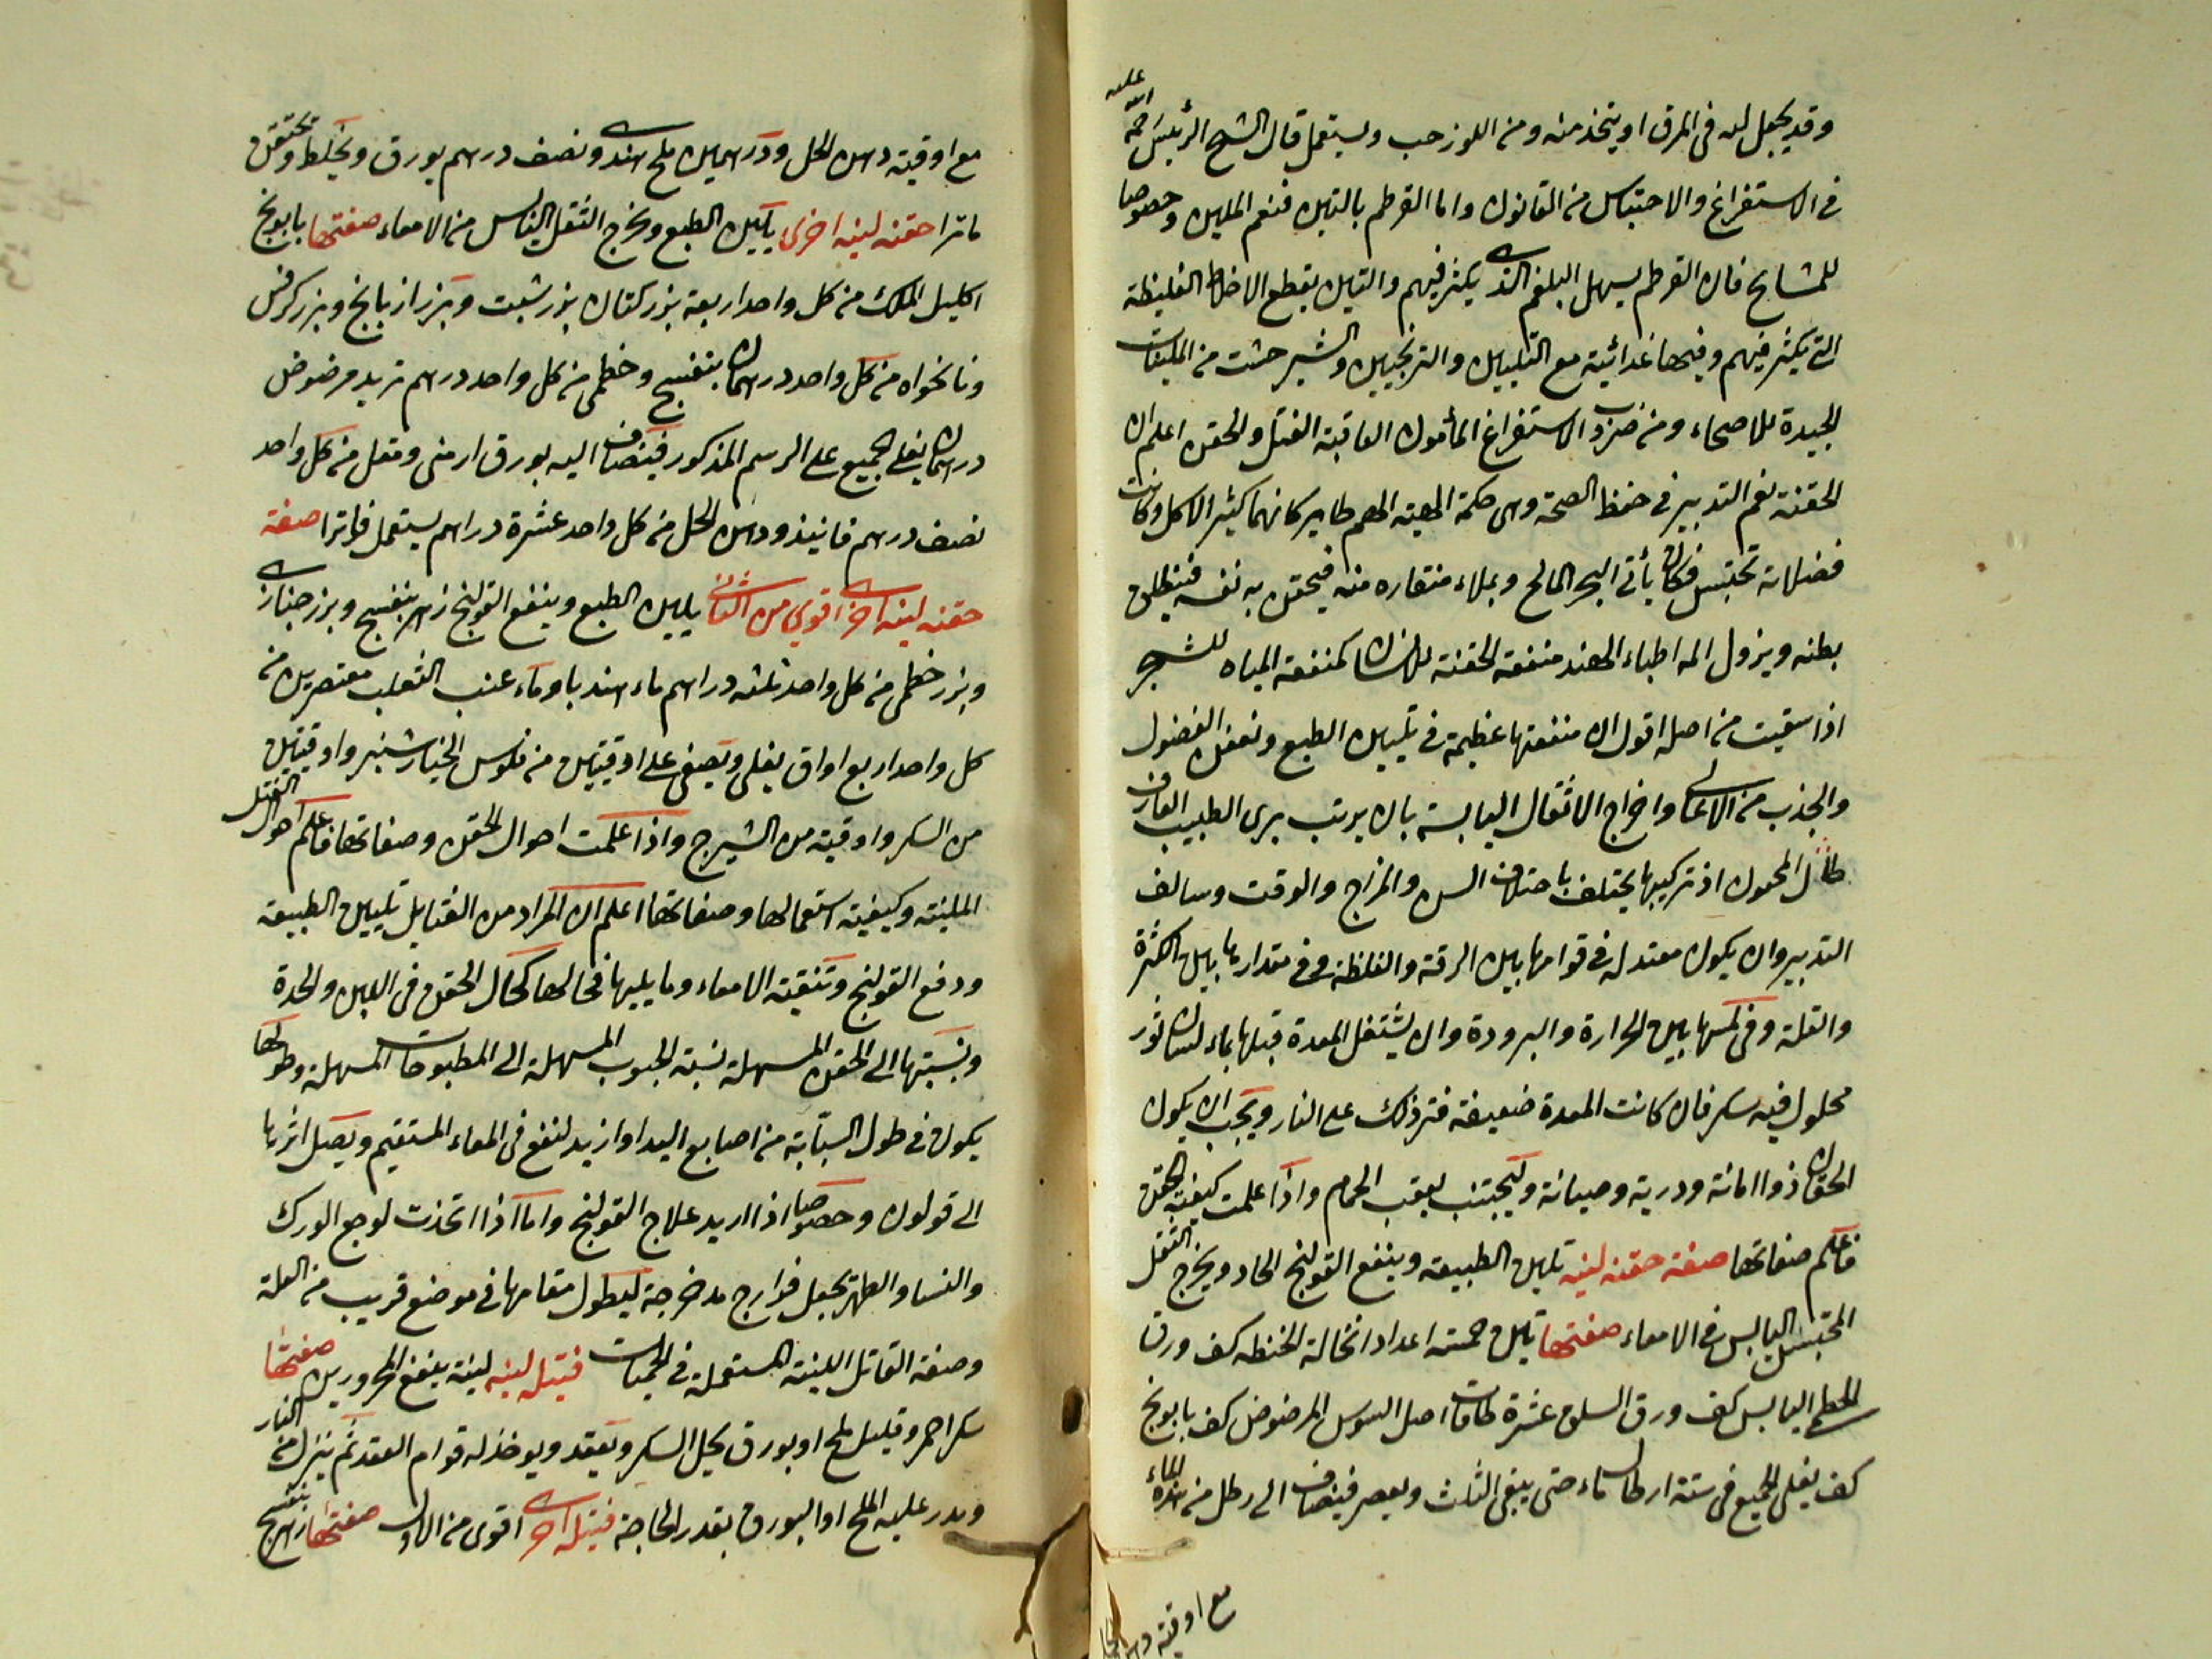 وقد يجعل لبه في المرق او يتخذ منه ومن اللوز حب ويستعمل قال الشيخ الرئيس رحمة الله عليه
في الاستفراغ والاحتباس من القانون واما القرطم بالتين فنعم الملين وخصوصا
للمشايخ فان القرطم يسهل البلغم الذي يكثر فيهم والتين يقطع الاخلاط الغليظة
التي يكثر فيهم وفيها غدائية مع التليين والترنجبين والشيرخشت من الملينات
الجيدة للاصحاء ومن ضروب الاستفراغ المأمون العاقبة الفتل والحقن اعلم ان
الحقنة نعم التدبير في حفظ الصحة وهي حكمة الهمة الهم طاير كانهما كثير الاكل وكانت
فضلاته تحتبس فكان يأتي البحر المالح ويملاء منقاره منه فيحقن به نفسه فينطلق
بطنه ويزول المه اطباء الهند منفعة الحقنة للانسان كمنفعة المياه للشجر
اذا سقيت من اصله اقول ان منفعتها عظيمة في تليين الطبع ونفض الفضول
والجذب من الاعالي واخراج الاثقال اليابسة بان يرتب برى الطبيب العارف
حال المحقون اذ تركيبها يختلف باختلاف السن والمزاج والوقت وسالف
التدبير وان يكون معتدله في قوامها بين الرقة والغلظة وفي مقدارها بين الكثرة
والقلة وفي لمسها بين الحرارة والبرودة وان يشتغل المعدة قبلها بماء لسان ثور
محلول فيه سكر فان كانت المعدة ضعيفة فتر ذلك على النار ويجب ان يكون
الحقان ذوا امانة ودرية وصيانة وليجتنب بعقب الحمام واذا علمت كيفية الحقن
فاعلم صفاتها صفة حقنه لينه تلين الطبيعه وينفع القولنج الحاد ويخرج الثفل
المحتبس اليابس في الامعاء صفتها تين خمسة اعداد انخالة الحنطه كف ورق
الخطمي اليابس كف ورق السلق عشرة طاقات اصل السوس المرضوض كف بابونج
كف يغلى الجميع في ستة ارطال ماء حتى يبقى الثلث ويعصر فيضاف الى رطل من هذا الماء
مع اوقية دهن
مع اوقية دهن الخل ودرهمين ملح هندي ونصف درهم بورق ويخلط ويحتقن
فاترا حقنه لينه اخرى يلين الطبع ويخرج الثفل اليابس من الامعاء صفتها بابونج
اكليل الملك من كل واحد اربعة بزر كتان بزر شبت وبزر رازيانج وبزر كرفس
ونانخواه من كل واحد درهمان بنفسج وخطمي من كل واحد درهم تربد مرضوض
درهمان يغلى الجميع على الرسم المذكور فيضاف اليه بورق ارمني ومقل من كل واحد
نصف درهم فانيذ ودهن الخل من كل واحد عشرة دراهم يستعمل فاترا صفة
حقنه لينه اخرى اقوى من الثاني يلين الطبع وينفع القولنج زهر بنفسج وبزر خبازى
وبزر خطمي من كل واحد ثلثه دراهم ماء هندبا وماء عنب الثعلب معتصرين من
كل واحد اربع اواق يغلى ويصفى على اوقيتين من فلوس الخيار شنبر واوقيتين
من السكر واوقيه من الشيرج واذا علمت احوال الحقن وصفاتها فاعلم احوال الفتل
الملينه وكيفية استعمالها وصفاتها اعلم ان المراد من الفتايل تليين الطبيعة
ودفع القولنج وتنقية الامعاء وما يليها فحالها كحال الحقن في اللين والحدة
ونسبتها الى الحقن المسهلة نسبة الحبوب المسهلة الى المطبوخات المسهلة وطولها
يكون في طول السبابة من اصابع اليد او ازيد لتنفع في المعاء المستقيم ويصل اثرها
الى قولون وخصوصا اذا اريد علاج القولنج واما اذا اتخذت لوجع الورك
والنسا والظهر يجعل فوارج مدخرجة ليطول مقامها في موضع قريب من العلة
وصفة الفاتل اللينة المستعملة في الحميات فتيله لينه لينة ينفع المحرورين صفتها
سكر احمر وقليل ملح او بورق يحل السكر ويعقد ويوخذ له قوام العقد ثم ينزل من النار
ويدر عليه الملح او البورق بقدر الحاجة فتيله اخرى اقوى من الاول صفتها زهر بنفسج